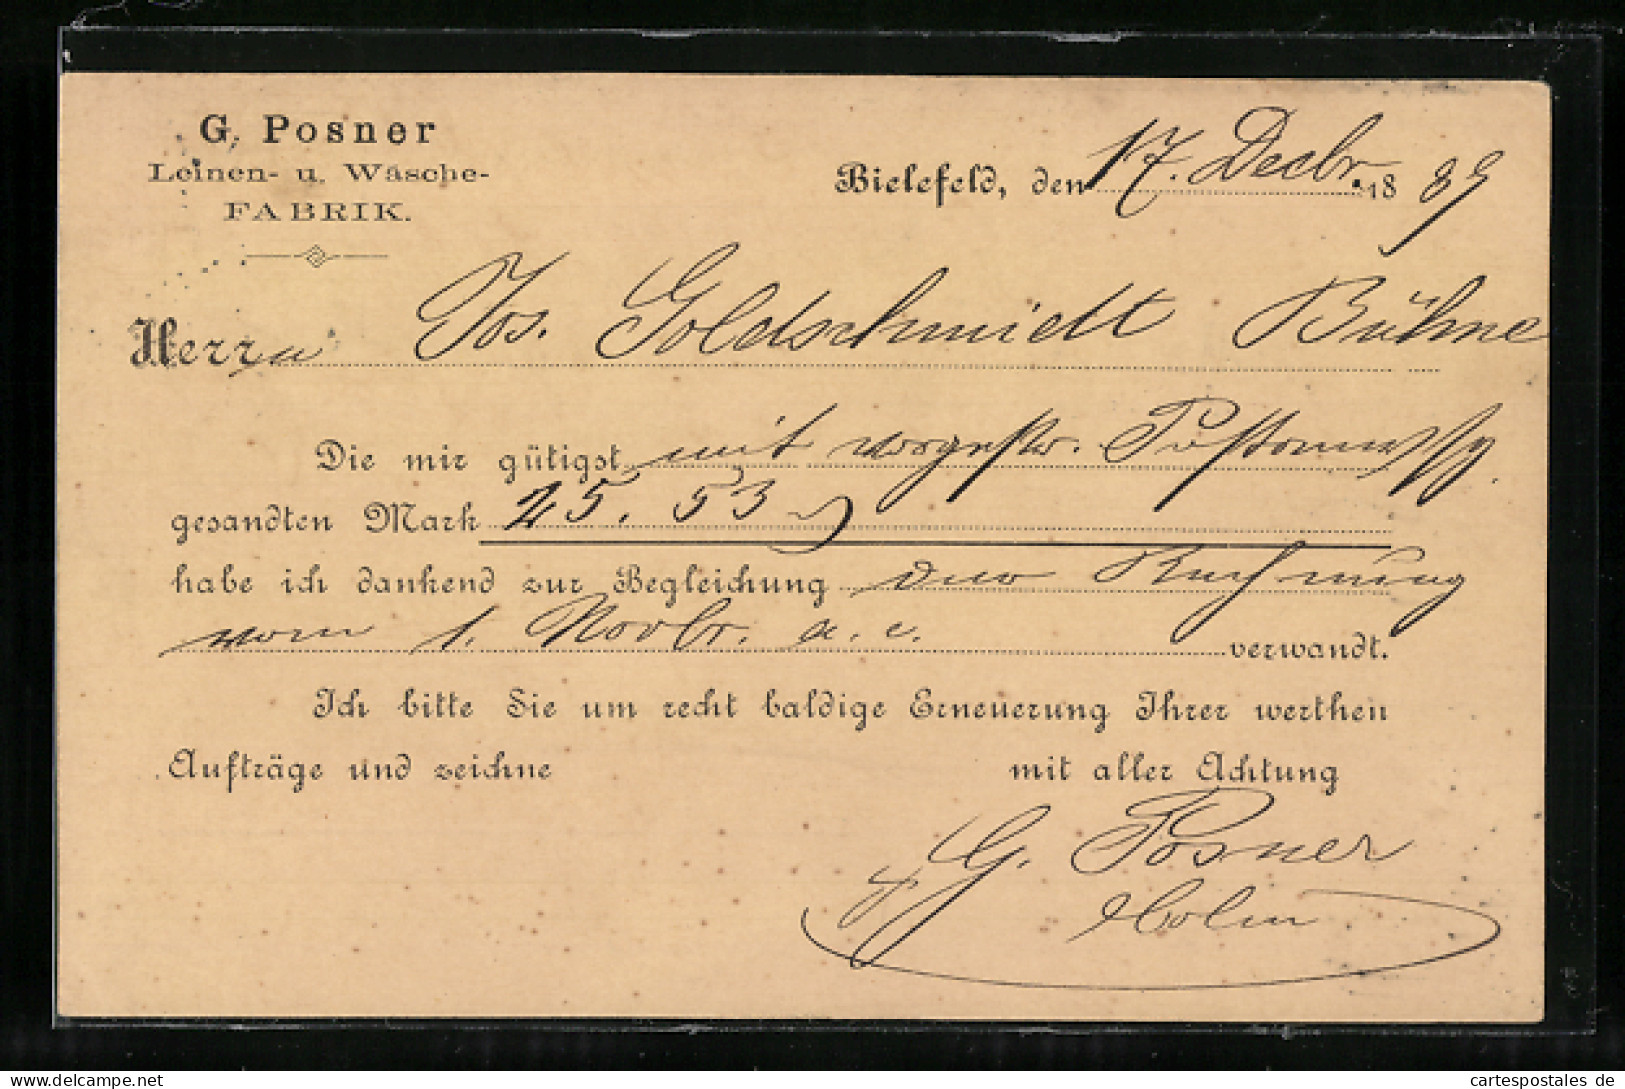 G. Posner
Leinen- u. Wäsche-
FABRIK.
Bielefeld, den 17. Decbr. 1889
Herrn Jos. Goldschmidt Bühne
Die mir gütigst mit vorgestr. Postanwsg.
gesandten Mark 25. 53
habe ich dankend zur Begleichung der Rechnung
vom 1. Novbr. a. c. verwandt.
Ich bitte Sie um recht baldige Erneuerung Ihrer werthen
Aufträge und zeichne mit aller Achtung
G. Posner
cartespostales de
www.delcampe.net